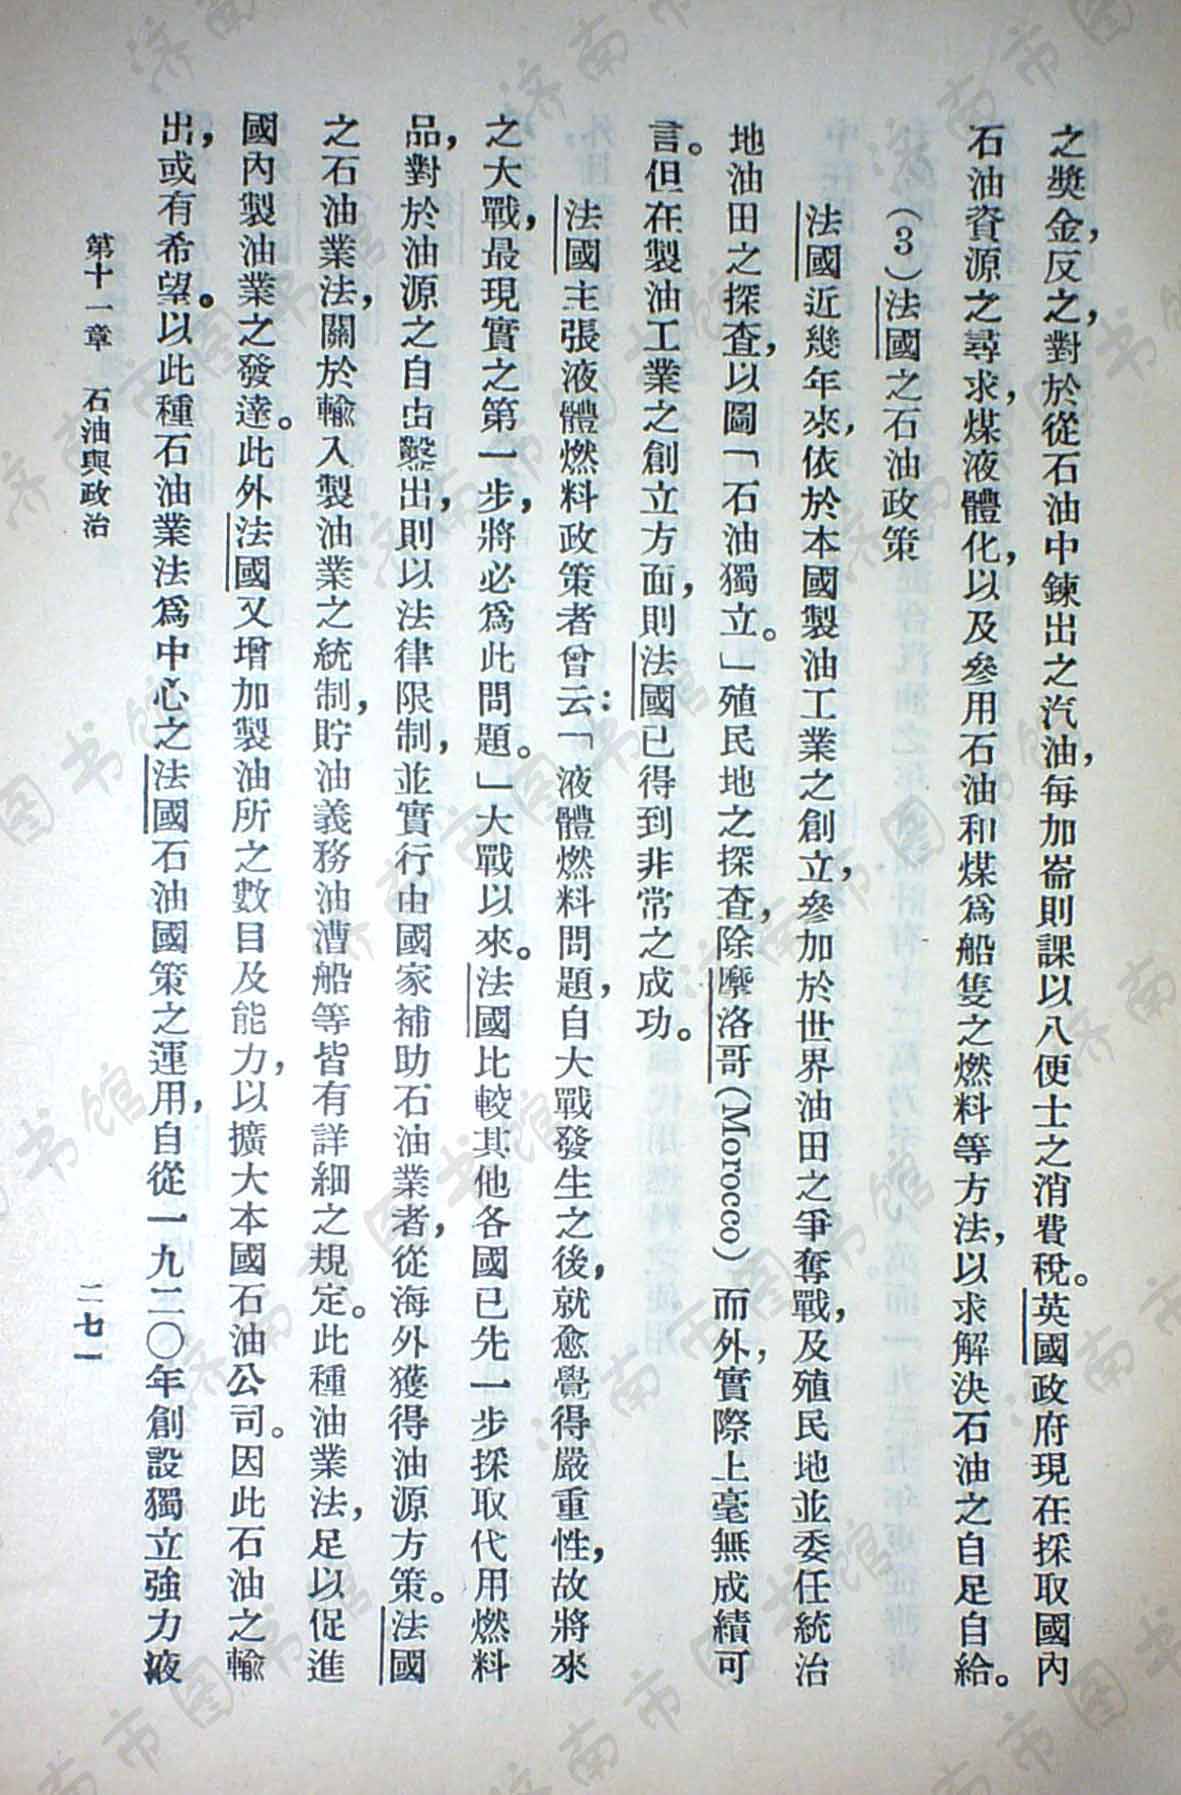 之獎金，反之，對於從石油中鍊出之汽油，每加崙則課以八便士之消費稅。英國政府現在採取國內
石油資源之尋求，煤液體化，以及參用石油和煤爲船隻之燃料等方法，以求解決石油之自足自給。
（3）法國之石油政策
法國近幾年來，依於本國製油工業之創立，參加於世界油田之爭奪戰，及殖民地並委任統治
地油田之探查，以圖「石油獨立。」殖民地之探查，除摩洛哥(Morocco)而外，實際上毫無成績可
言。但在製油工業之創立方面，則法國已得到非常之成功。
法國主張液體燃料政策者曾云：「液體燃料問題，自大戰發生之後，就愈覺得嚴重性，故將來
之大戰，最現實之第一步，將必爲此問題。」大戰以來。法國比較其他各國已先一步採取代用燃料
品，對於油源之自由鑿出，則以法律限制，並實行由國家補助石油業者，從海外獲得油源方策。法國
之石油業法，關於輸入製油業之統制，貯油義務油漕船等皆有詳細之規定。此種油業法，足以促進
國內製油業之發達。此外法國又增加製油所之數目及能力，以擴大本國石油公司。因此石油之輸
出，或有希望。以此種石油業法爲中心之法國石油國策之運用，自從一九二〇年創設獨立強力液
第十一章　石油與政治
二七一
济南市图书馆
济南市图书馆
济南市图书馆
济南市图书馆